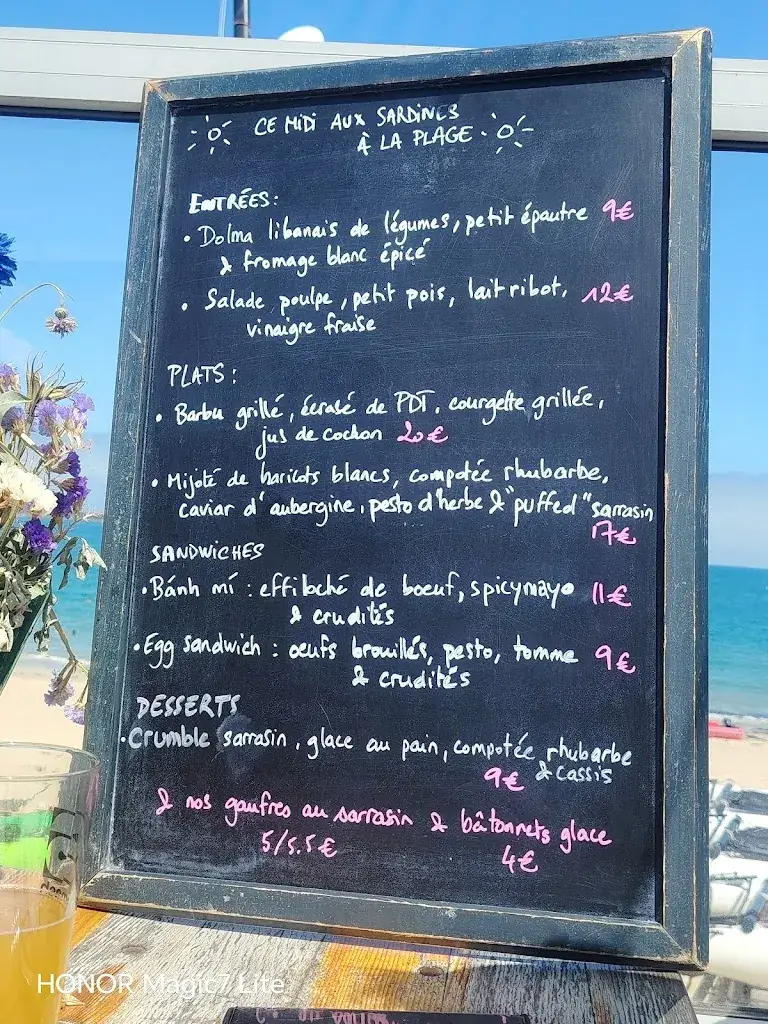 CE MIDI AUX SARDINES
À LA PLAGE
ENTRÉES:
• Dolma libanais de légumes, petit épautre 9€
& fromage blanc épicé
• Salade poulpe, petit pois, lait ribot, 12€
vinaigre fraise
PLATS:
• Barbu grillé, écrasé de PDT, courgette grillée,
jus de cochon 20€
• Mijoté de haricots blancs, compotée rhubarbe,
caviar d'aubergine, pesto d'herbe & "puffed" sarrasin
17€
SANDWICHES
• Bánh mí : effiloché de boeuf, spicymayo 11€
& crudités
• Egg sandwich : oeufs brouillés, pesto, tomme 9€
& crudités
DESSERTS
• Crumble sarrasin, glace au pain, compotée rhubarbe
9€ & cassis
& nos gaufres au sarrasin & bâtonnets glace
5/5.5€ 4€
HONOR Magic7 Lite